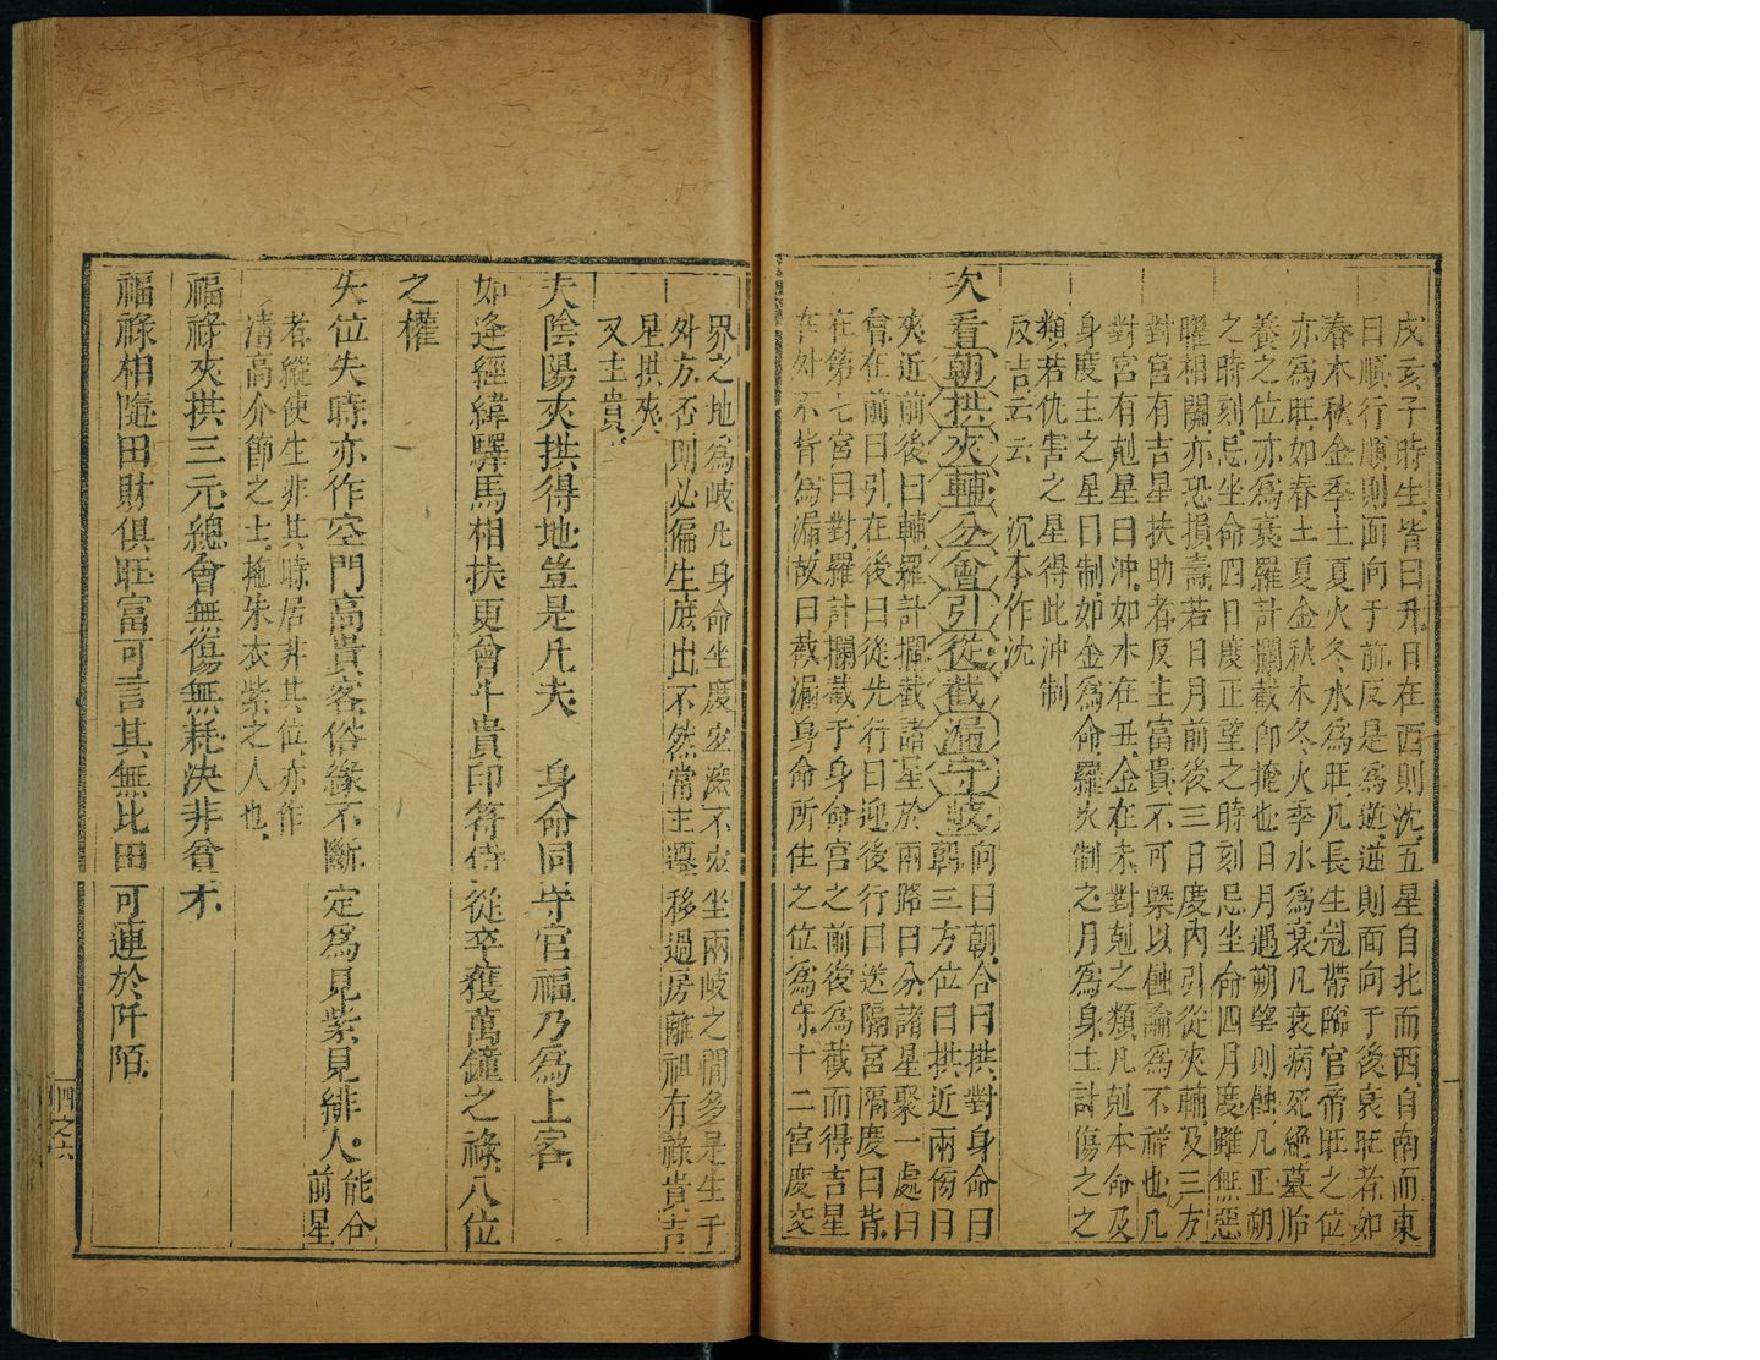 戌亥子時生皆曰升日在酉則沈五星自北而西自南而東
曰順行順則面向于前反是為逆逆則面向于後衰旺者如
春木秋金季土夏火冬水為旺凡長生冠帶臨官帝旺之位
亦為旺如春土夏金秋木冬火季水為衰凡衰病死絕墓胎
養之位亦為衰羅計攔截卽掩也日月遇朔望則蝕凡正朔
之時刻忌坐命四日度正望之時刻忌坐命四月度雖無惡
曜相關亦恐損壽若日月前後三日度內引從夾輔及三方
對宮有吉星扶助者反主富貴不可槩以蝕論為不祥也凡
對宮有剋星曰沖如木在丑金在未對剋之類凡剋本命及
身度主之星曰制如金為命羅火制之月為身土計傷之之
類若仇害之星得此沖制
反吉云云　沉本作沈
次看朝拱夾輔分會引從截漏守岐向曰朝合曰拱對身命曰
朝三方位曰拱近兩傍曰
夾近前後曰輔羅計攔截諸星於兩路曰分諸星聚一處曰
會在前曰引在後曰從先行曰迎後行曰送隔宮隔度曰背
在第七宮曰對羅計攔截于身命宮之前後為截而得吉星
在外不皆為漏故曰截漏身命所住之位為守十二宮度交
界之地為岐凡身命坐度宜深不宜坐兩岐之間多是生于
外方否則必偏生庶出不然常主遷移過房離祖有祿貴吉
星拱夾
又主貴
夫陰陽夾拱得地豈是凡夫　身命同守官福乃為上客
如逢經緯驛馬相扶更會斗貴印符侍從卒獲萬鐘之祿八位
之權
失位失時亦作空門高貴客俗緣不斷定為見紫見緋人。能分
前星
者縱使生非其時居非其位亦作
清高介節之士拖朱衣紫之人也
福祿夾拱三元總會無傷無耗決非貧才
福祿相隨田財俱旺富可言其無比田可連於阡陌
四之六